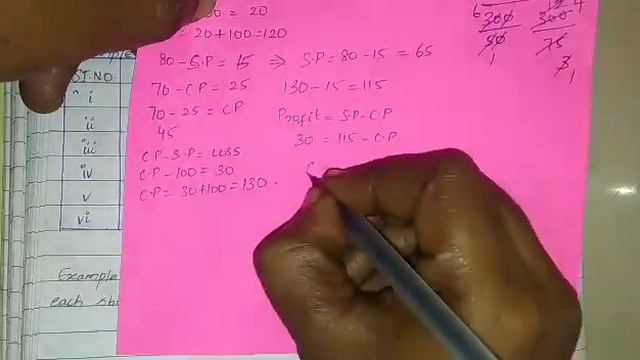 = 20
= 20+100=120
80-S.P= 15 ⇒ S.P=80-15 = 65
70-CP = 25
70-25 = CP
45
CP-S.P= Loss
C.P-100= 30
C.P= 30+100=130.
130-15=115
Profit= S.P-C.P
30 = 115-C.P
C
6
300
50
1
300
75
3
1
4
ST.NO
i
ii
iii
iv
v
vi
Example
each sh